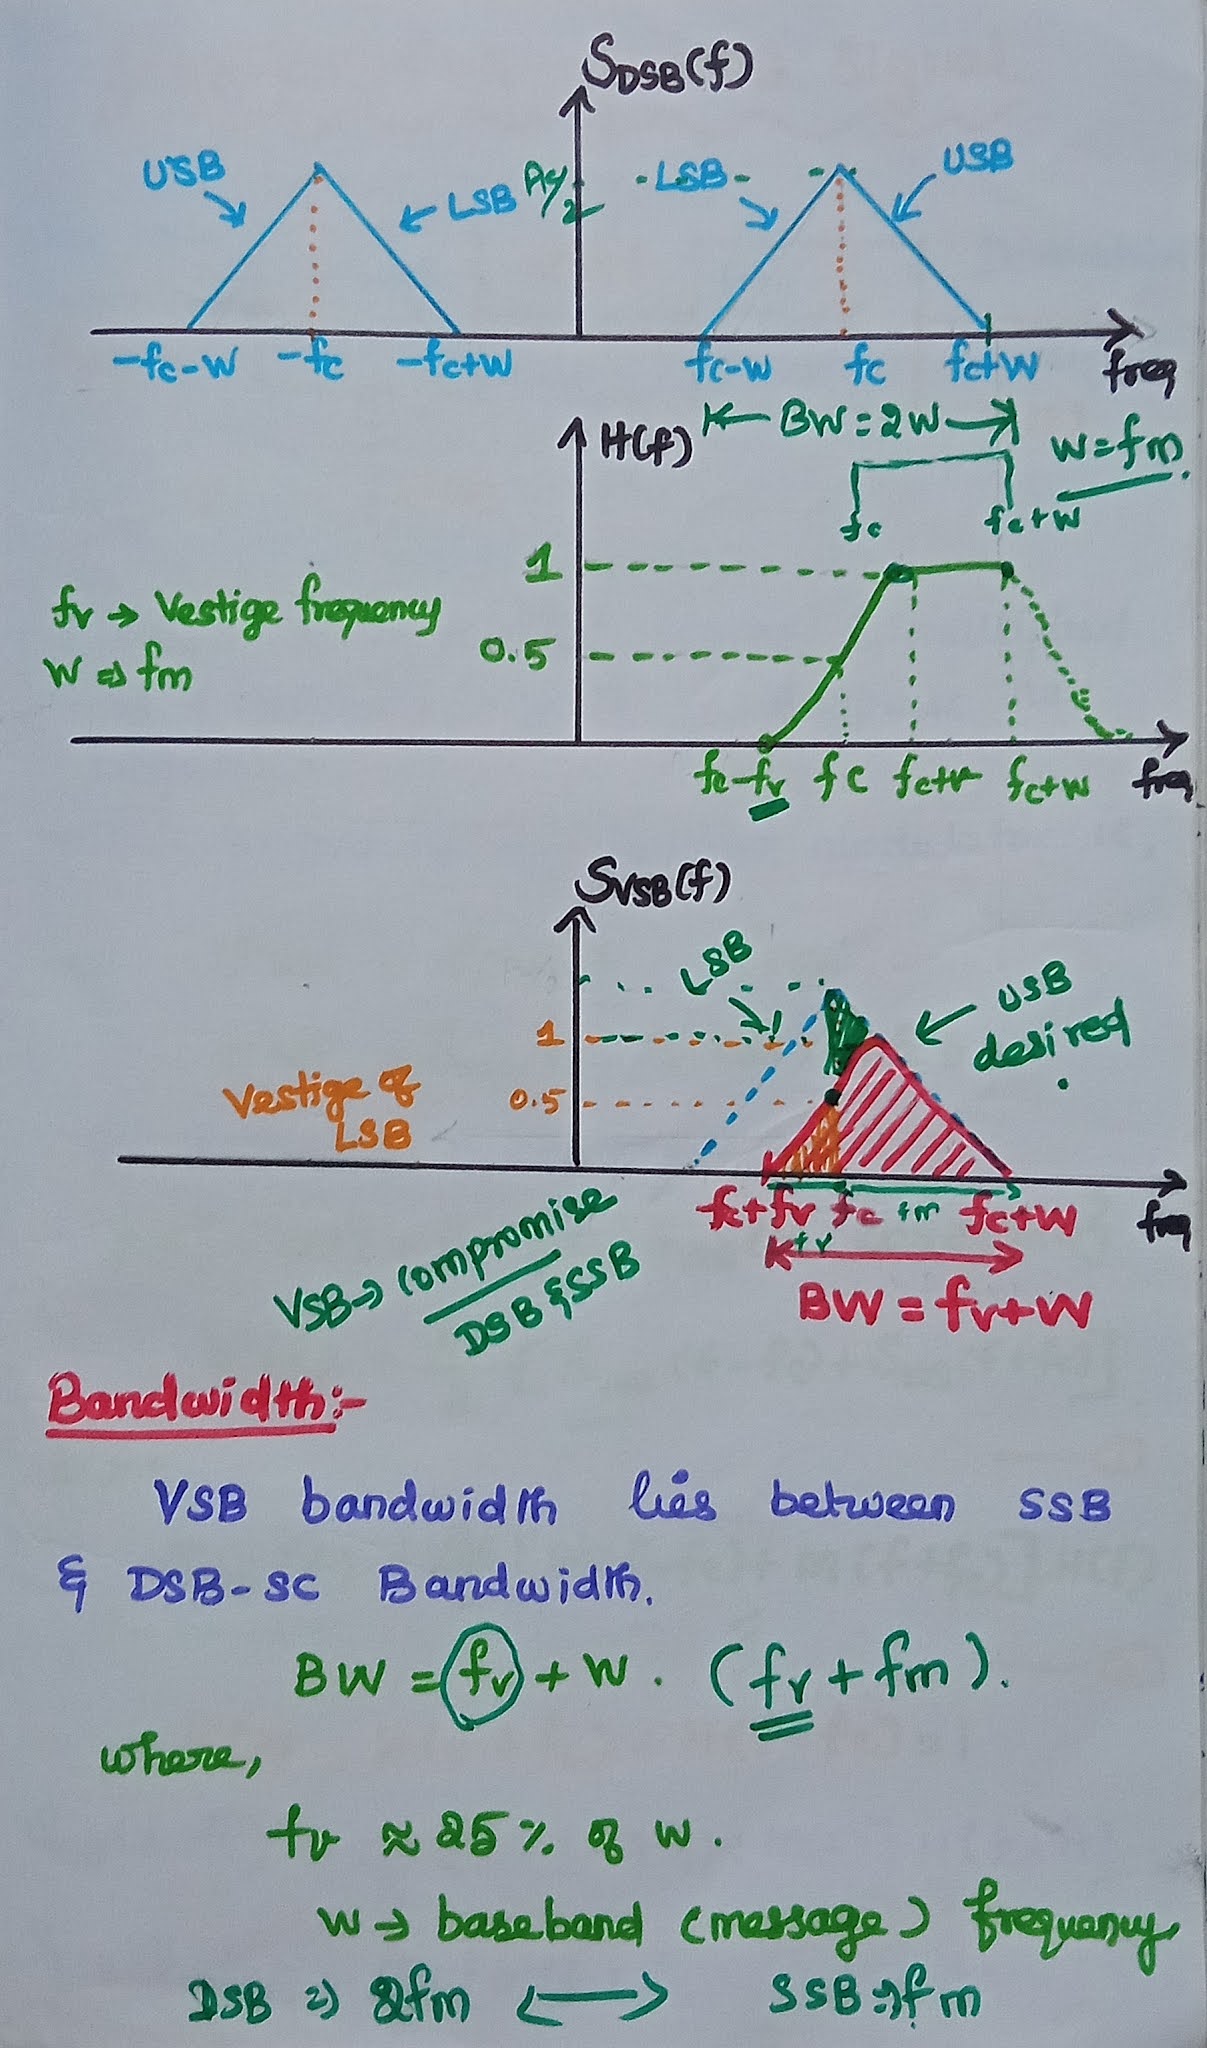 SDSB(f)
USB
LSB
Ac/2
LSB
USB
-fc-W
-fc
-fc+W
fc-W
fc
fc+W
freq
BW=2W
H(f)
W=fm.
fc
fc+W
1
fv → Vestige frequency
W ⇒ fm
0.5
fc-fv
fc
fc+v
fc+W
freq
SVSB(f)
LSB
USB
desired
1
0.5
Vestige of
LSB
fc+fv
fc
fm
fc+W
freq
fv
VSB→ compromise
DSB & SSB
BW = fv+W
Bandwidth:-
VSB bandwidth lies between SSB
& DSB-SC Bandwidth.
BW = fv + W. (fv + fm).
where,
fv ≈ 25% of W.
W → baseband (message) frequency
DSB ⇒ 2fm ⟷ SSB ⇒ fm